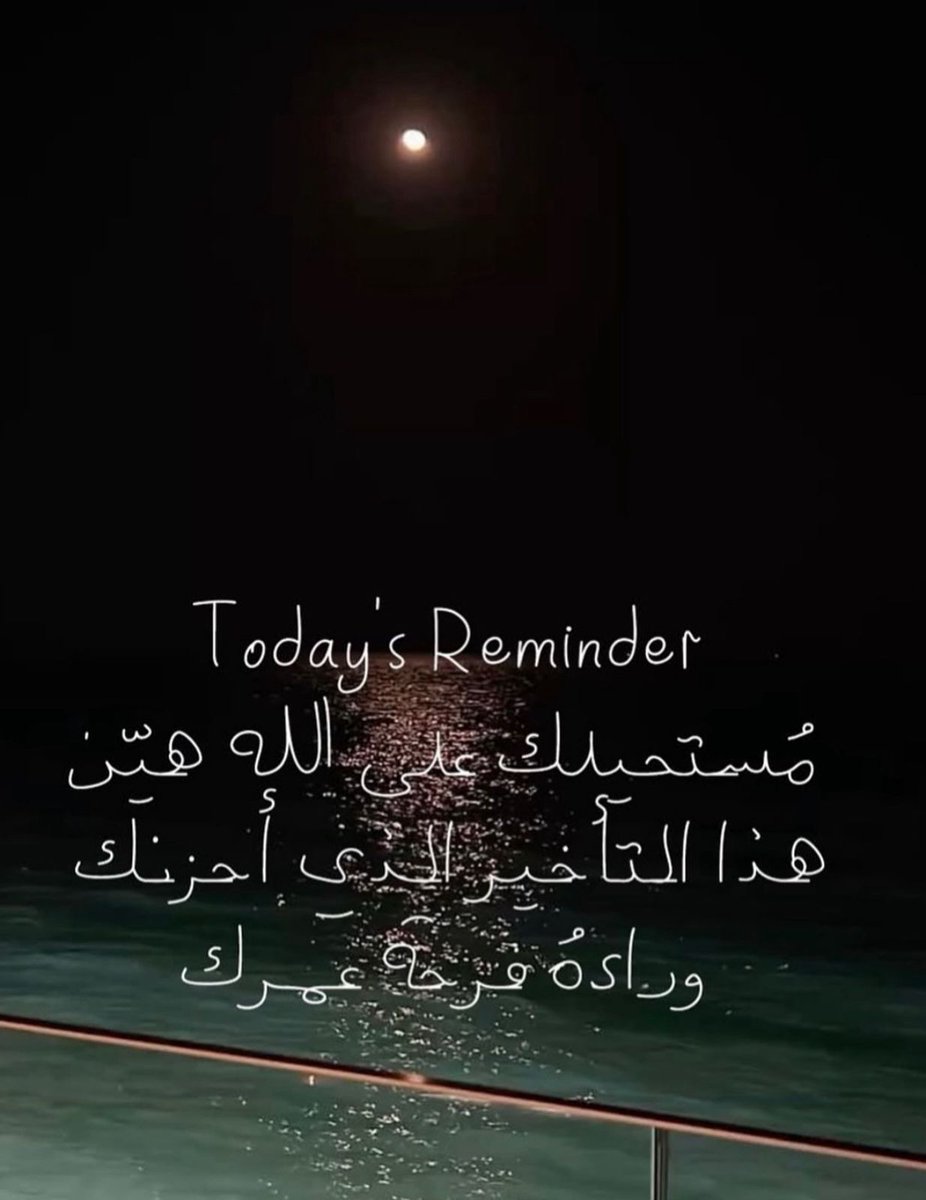 Today's Reminder
مُستحيلك على الله هيّن
هذا التأخير الذي أحزنك
وراءهُ فرحة عمرك